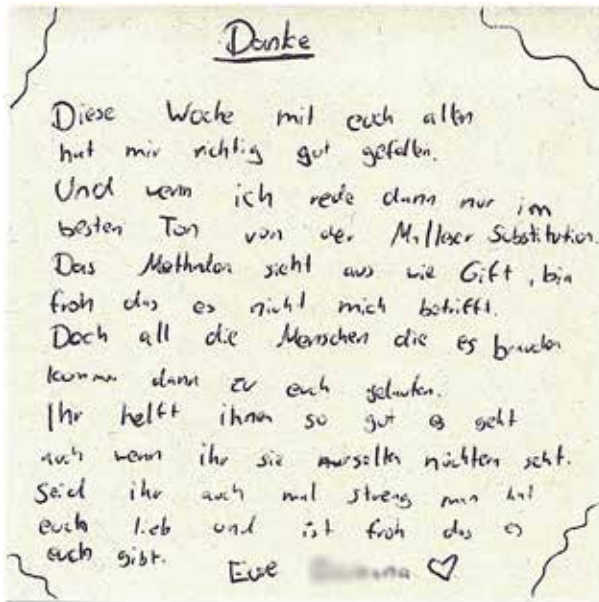 Danke
Diese Woche mit euch allen
hat mir richtig gut gefallen.
Und wenn ich rede dann nur im
besten Ton von der Malteser Substitution.
Das Methadon sieht aus wie Gift, bin
froh das es nicht mich betrifft.
Doch all die Menschen die es brauchen
kommen dann zu euch gelaufen.
Ihr helft ihnen so gut es geht
auch wenn ihr sie nur selten nüchtern seht.
Seid ihr auch mal streng man hat
euch lieb und ist froh das es
euch gibt.
Eure